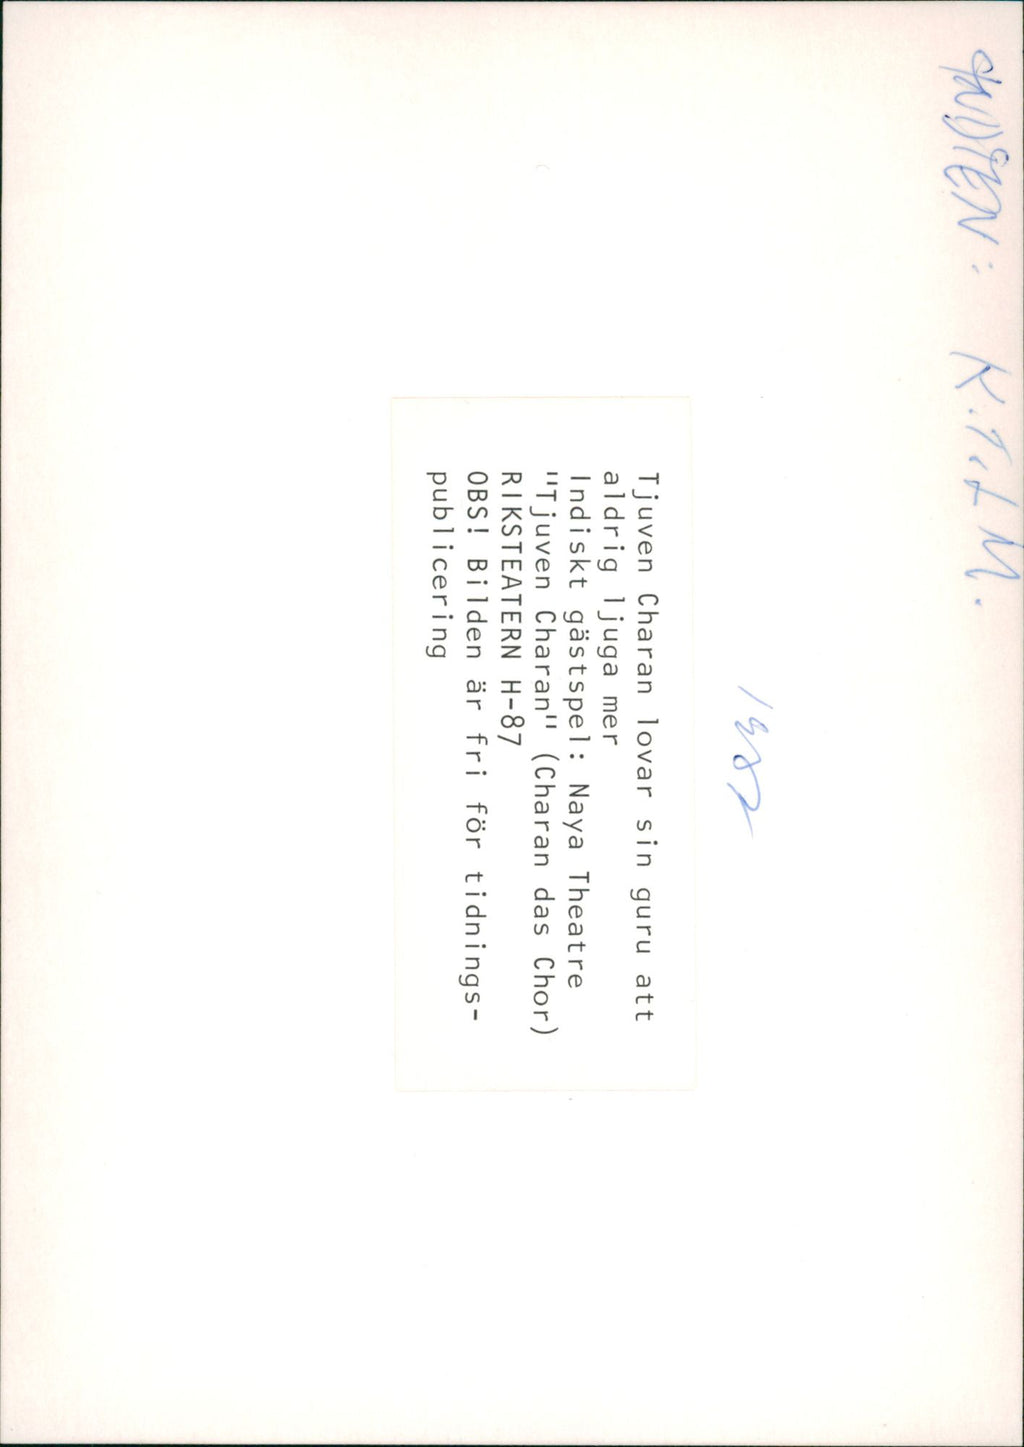 K.T.L.M.
1987
Tjuven Charan lovar sin guru att
aldrig ljuga mer
Indiskt gästspel: Naya Theatre
"Tjuven Charan" (Charan das Chor)
RIKSTEATERN H-87
OBS! Bilden är fri för tidnings-
publicering